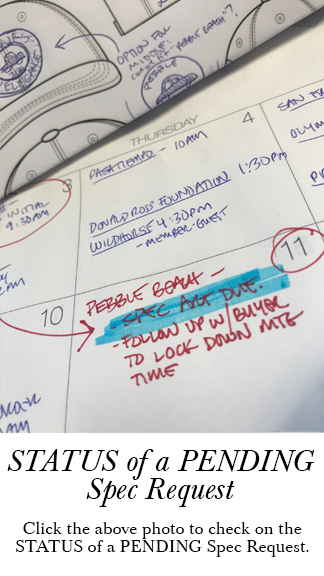 OPTION FOR
MIDDLE:
PEBBLE
THURSDAY
4
PASATIEMPO - 10AM
SAN
DONALD ROSS FOUNDATION 1:30PM
WILDHORSE 4:30PM
- MEMBER-GUEST
INITIAL
9:30AM
10
11
PEBBLE BEACH -
- SPEC ART DUE.
- FOLLOW UP W/ BUYER
TO LOCK DOWN MTG
TIME
AM
STATUS of a PENDING
Spec Request
Click the above photo to check on the
STATUS of a PENDING Spec Request.